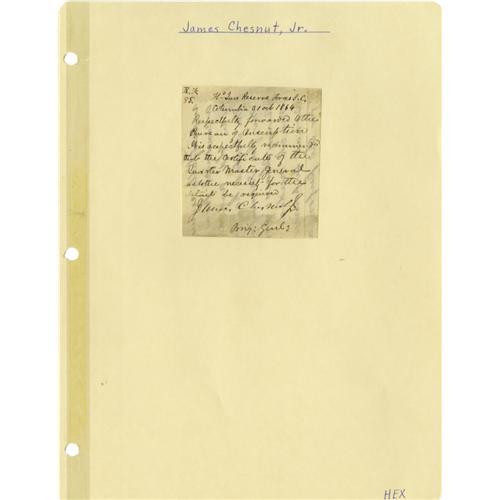 James Chesnut, Jr.
Hd Qurs Reserve Forces S.C.
Columbia 31 Oct 1864
Respectfully forwarded to the
Bureau of Conscription
It is respectfully recommended
that the Certificate of the
Quarter Master General
as to the necessity for the
detail be required
James Chesnut Jr
Brig: Genl:
HEX